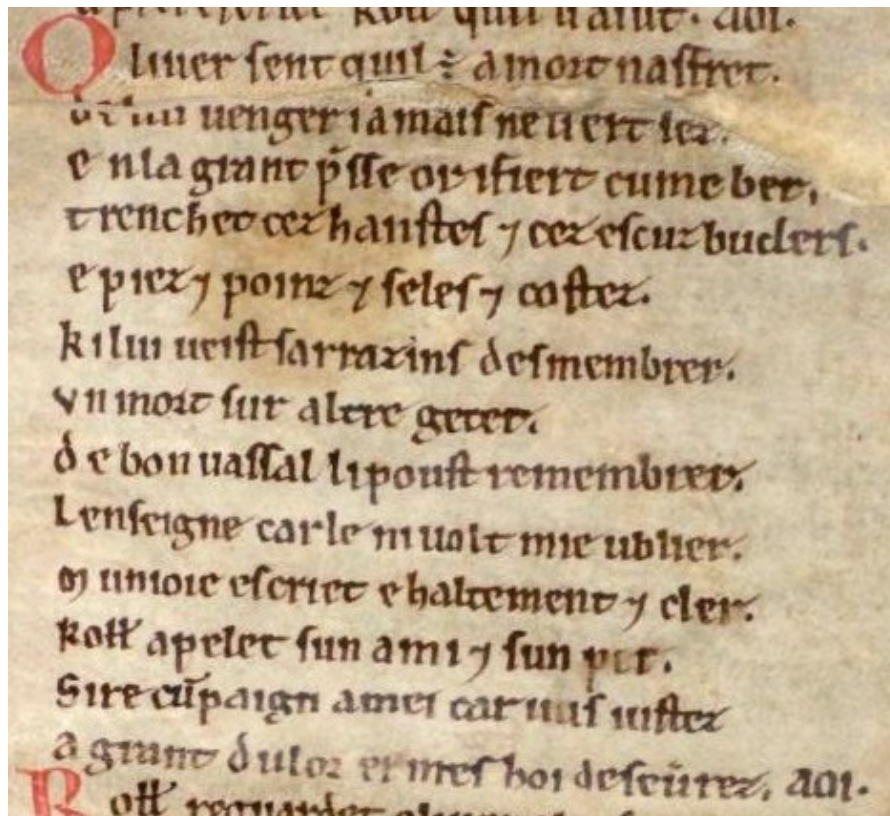 quil uaiut. aoi.
Oliuer sent quil ÷ a mort nasfret.
De lui uenger iamais ne li ert lez.
e n la grant p̄sse or i fiert cume ber.
t renchet cez hanstes ⁊ cez escuz buclers.
e piez ⁊ poinz ⁊ seles ⁊ costez.
k i lui ueist sarrazins desmembrer.
v n mort sur altre geter.
d e bon uassal li poust remembrer.
L enseigne carle ni uolt mie ublier.
m unioie escriet e haltement ⁊ cler.
Roll̄ apelet sun ami ⁊ sun per.
Sire cūpaign a mei car uus iustez
a grant dulor ermes hoi deseūrez. aoi.
Roll̄ reguardet